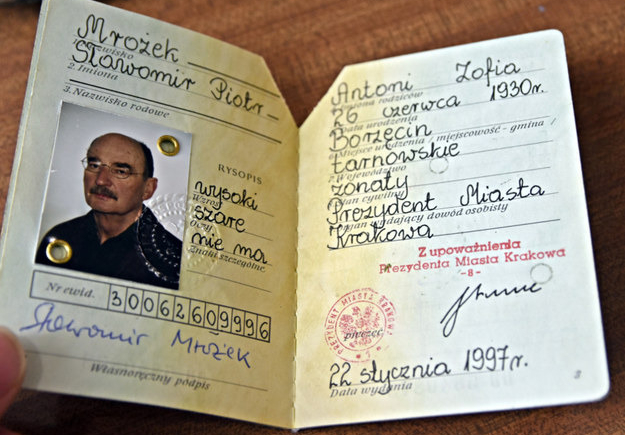 Mrożek
1. Nazwisko
Sławomir Piotr
2. Imiona
3. Nazwisko rodowe
RYSOPIS
wysoki
Wzrost
szare
Oczy
nie ma
Znaki szczególne
Nr ewid. 30062609996
Sławomir Mrożek
Własnoręczny podpis
Antoni Zofia
Imiona rodziców
26 czerwca 1930r.
Data urodzenia
Borzęcin
Miejsce urodzenia / miejscowość - gmina /
tarnowskie
Województwo
żonaty
Stan cywilny
Prezydent Miasta
Organ wydający dowód osobisty
Krakowa
Z upoważnienia
Prezydenta Miasta Krakowa
-8-
PREZYDENT MIASTA KRAKOWA
pieczęć
22 stycznia 1997r.
Data wydania
3